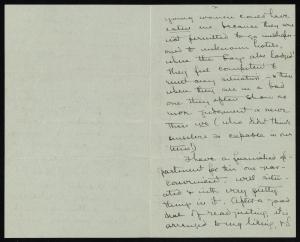 young women could have
eaten me because they were
not permitted to go
to unknown hotels,
where the boys also lodged
they feel competent to
meet any situation - & then
when they are in a bad
one they often show no
more judgment & nerve
than we (who did think
ourselves so capable in our
teens!)
I have a furnished a-
partment for this one year -
convenient - well situ-
ated & with very pretty
things in it. After a good
deal of readjusting, it is
arranged to my liking, & I